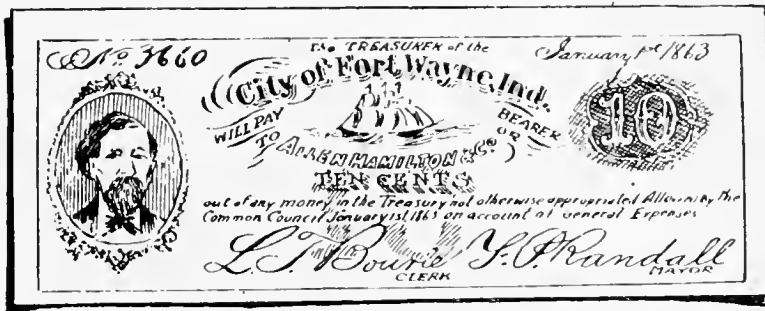 No 3660
The TREASURER of the
January 1st 1863
City of Fort Wayne, Ind.
WILL PAY TO
ALLEN HAMILTON & Co
OR BEARER
10
TEN CENTS
out of any money in the Treasury not otherwise appropriated Allown by the
Common Council January 1st 1863 on account of General Expenses
L. T. Bourie
CLERK
F. P. Randall
MAYOR